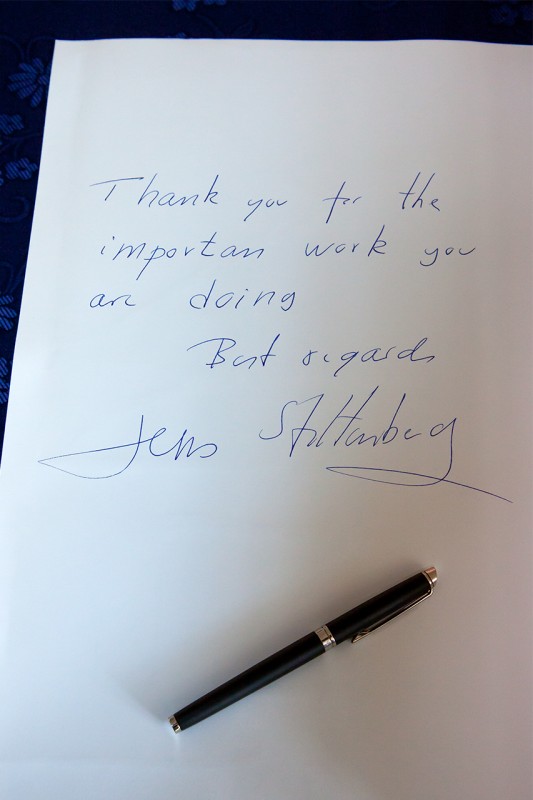 Thank you for the
importan work you
are doing
Best regards
Jens Stoltenberg